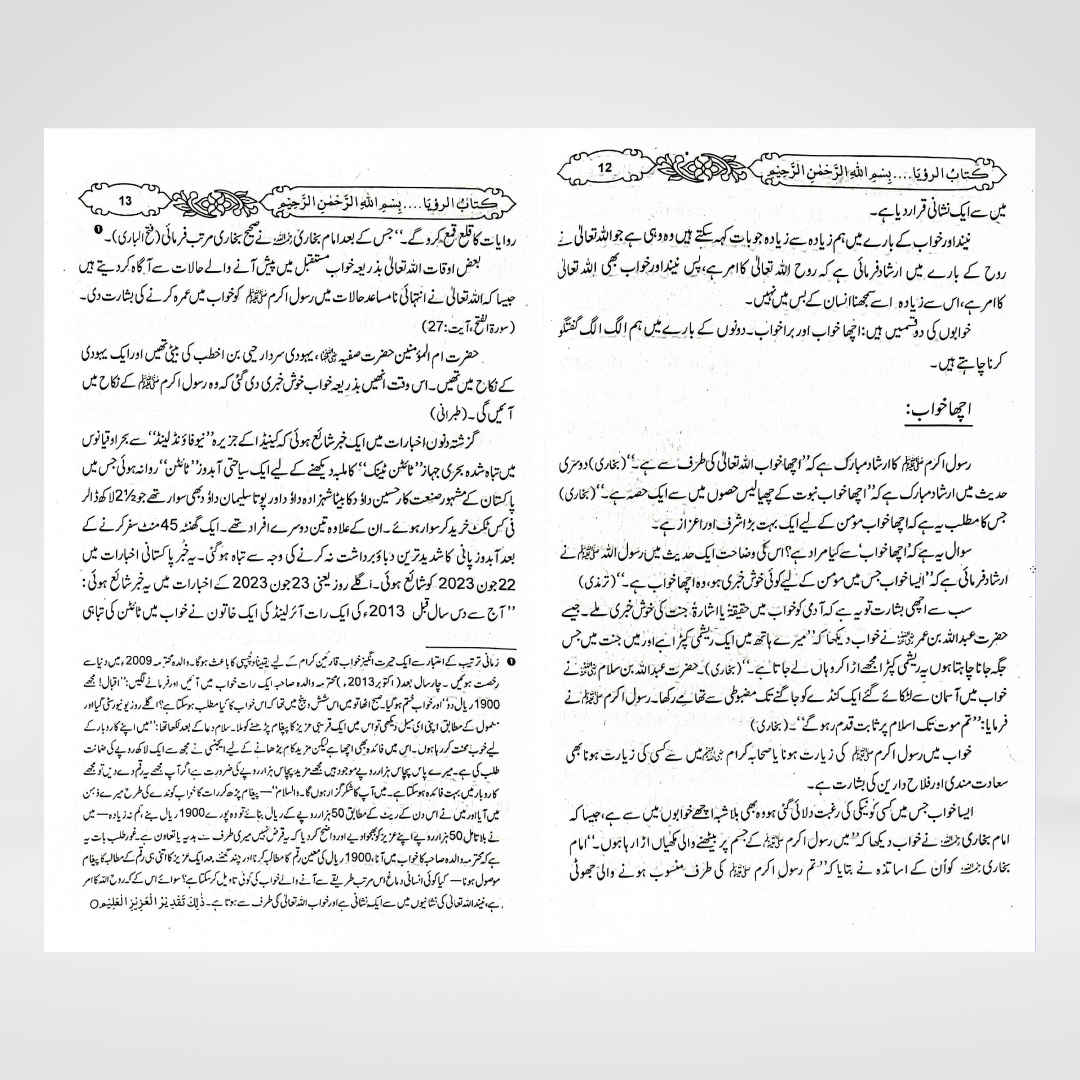 كتابُ الرؤيا.... بِسْمِ اللهِ الرَّحْمٰنِ الرَّحِيْمِ 12
میں سے ایک نشانی قرار دیا ہے۔
نیند اور خواب کے بارے میں ہم زیادہ سے زیادہ جو بات کہہ سکتے ہیں وہ وہی ہے جو اللہ تعالیٰ نے
روح کے بارے میں ارشاد فرمائی ہے کہ روح اللہ تعالیٰ کا امر ہے، پس نیند اور خواب بھی اللہ تعالیٰ
کا امر ہے، اس سے زیادہ اسے سمجھنا انسان کے بس میں نہیں۔
خوابوں کی دو قسمیں ہیں: اچھا خواب اور برا خواب۔ دونوں کے بارے میں ہم الگ الگ گفتگو
کرنا چاہتے ہیں۔
اچھا خواب:
رسول اکرم ﷺ کا ارشاد مبارک ہے کہ ”اچھا خواب اللہ تعالیٰ کی طرف سے ہے۔“ (بخاری) دوسری
حدیث میں ارشاد مبارک ہے کہ ”اچھا خواب نبوت کے چھیالیس حصوں میں سے ایک حصہ ہے۔“ (بخاری)
جس کا مطلب یہ ہے کہ اچھا خواب مؤمن کے لیے ایک بہت بڑا شرف اور اعزاز ہے۔
سوال یہ ہے کہ ’اچھا خواب‘ سے کیا مراد ہے؟ اس کی وضاحت ایک حدیث میں رسول اللہ ﷺ نے
ارشاد فرمائی ہے کہ ”ایسا خواب جس میں مؤمن کے لیے کوئی خوش خبری ہو، وہ اچھا خواب ہے۔“ (ترمذی)
سب سے اچھی بشارت تو یہ ہے کہ آدمی کو خواب میں حقیقۃً یا اشارۃً جنت کی خوش خبری ملے۔ جیسے
حضرت عبداللہ بن عمر رضی اللہ عنہما نے خواب دیکھا کہ ”میرے ہاتھ میں ایک ریشمی کپڑا ہے اور میں جنت میں جس
جگہ جانا چاہتا ہوں یہ ریشمی کپڑا مجھے اڑا کر وہاں لے جاتا ہے۔“ (بخاری)۔ حضرت عبداللہ بن سلام رضی اللہ عنہ نے
خواب میں آسمان سے لٹکائے گئے ایک کنڈے کو جاگنے تک مضبوطی سے تھامے رکھا۔ رسول اکرم ﷺ نے
فرمایا: ”تم موت تک اسلام پر ثابت قدم رہو گے“۔ (بخاری)
خواب میں رسول اکرم ﷺ کی زیارت ہونا یا صحابہ کرام رضی اللہ عنہم میں سے کسی کی زیارت ہونا بھی
سعادت مندی اور فلاح دارین کی بشارت ہے۔
ایسا خواب جس میں کسی کو نیکی کی رغبت دلائی گئی ہو وہ بھی بلا شبہ اچھے خوابوں میں سے ہے، جیسا کہ
امام بخاری رحمہ اللہ نے خواب دیکھا کہ ”میں رسول اکرم ﷺ کے جسم پر بیٹھنے والی مکھیاں اڑا رہا ہوں۔“ امام
بخاری رحمہ اللہ کو اُن کے اساتذہ نے بتایا کہ ”تم رسول اکرم ﷺ کی طرف منسوب ہونے والی جھوٹی
كتابُ الرؤيا.... بِسْمِ اللهِ الرَّحْمٰنِ الرَّحِيْمِ 13
روایات کا قلع قمع کرو گے۔“ جس کے بعد امام بخاری رحمہ اللہ نے صحیح بخاری مرتب فرمائی (فتح الباری)۔ ❶
بعض اوقات اللہ تعالیٰ بذریعہ خواب مستقبل میں پیش آنے والے حالات سے آگاہ کر دیتے ہیں
جیسا کہ اللہ تعالیٰ نے انتہائی نامساعد حالات میں رسول اکرم ﷺ کو خواب میں عمرہ کرنے کی بشارت دی۔
(سورۃ الفتح، آیت: 27)
حضرت ام المؤمنین حضرت صفیہ رضی اللہ عنہا، یہودی سردار حیی بن اخطب کی بیٹی تھیں اور ایک یہودی
کے نکاح میں تھیں۔ اس وقت انھیں بذریعہ خواب خوش خبری دی گئی کہ وہ رسول اکرم ﷺ کے نکاح میں
آئیں گی۔ (طبرانی)
گزشتہ دنوں اخبارات میں ایک خبر شائع ہوئی کہ کینیڈا کے جزیرہ ”نیو فاؤنڈ لینڈ“ سے بحر اوقیانوس
میں تباہ شدہ بحری جہاز ”ٹائٹن ٹینک“ کا ملبہ دیکھنے کے لیے ایک سیاحتی آبدوز ”ٹائٹن“ روانہ ہوئی جس میں
پاکستان کے مشہور صنعت کار حسین داؤد کا بیٹا شہزادہ داؤد اور پوتا سلیمان داؤد بھی سوار تھے جو 2½ لاکھ ڈالر
فی کس ٹکٹ خرید کر سوار ہوئے۔ ان کے علاوہ تین دوسرے افراد تھے۔ ایک گھنٹہ 45 منٹ سفر کرنے کے
بعد آبدوز پانی کا شدید ترین دباؤ برداشت نہ کرنے کی وجہ سے تباہ ہو گئی۔ یہ خبر پاکستانی اخبارات میں
22 جون 2023 کو شائع ہوئی۔ اگلے روز یعنی 23 جون 2023 کے اخبارات میں یہ خبر شائع ہوئی:
”آج سے دس سال قبل 2013ء کی ایک رات آئرلینڈ کی ایک خاتون نے خواب میں ٹائٹن کی تباہی
❶ زمانی ترتیب کے اعتبار سے ایک حیرت انگیز خواب قارئین کرام کے لیے یقیناً دلچسپی کا باعث ہوگا۔ والدہ محترمہ 2009ء میں دنیا سے
رخصت ہوئیں۔ چار سال بعد (اکتوبر 2013ء) محترمہ والدہ صاحبہ ایک رات خواب میں آئیں اور فرمانے لگیں: ”اقبال! مجھے
1900 ریال دو“ اور خواب ختم ہو گیا۔ صبح اٹھا تو میں اس شش و پنج میں تھا کہ اس خواب کا کیا مطلب ہو سکتا ہے؟ اگلے روز یونیورسٹی گیا اور
معمول کے مطابق اپنی ای میل دیکھی تو اس میں ایک قریبی عزیز کا پیغام پڑھنے کو ملا۔ سلام دعا کے بعد لکھا تھا: ”میں اپنے کاروبار کے
لیے خوب محنت کر رہا ہوں۔ اس میں فائدہ بھی اچھا ہے لیکن مزید کام بڑھانے کے لیے ایجنسی نے مجھ سے ایک لاکھ روپے کی ضمانت
طلب کی ہے۔ میرے پاس پچاس ہزار روپے موجود ہیں مجھے مزید پچاس ہزار روپے کی ضرورت ہے اگر آپ مجھے یہ رقم دے دیں تو مجھے
کاروبار میں بہت فائدہ ہو سکتا ہے۔ میں آپ کا شکر گزار ہوں گا۔ والسلام“ — پیغام پڑھ کر رات کا خواب کوندے کی طرح میرے ذہن
میں آیا اور میں نے اس دن کے ریٹ کے مطابق 50 ہزار روپے کے ریال بنائے تو وہ پورے 1900 ریال بنے، کم نہ زیادہ — میں
نے بلا تامل 50 ہزار روپے اپنے عزیز کو بھجوا دیے اور واضح کر دیا کہ یہ قرض نہیں میری طرف سے ہدیہ یا تعاون ہے۔ غور طلب بات یہ
ہے کہ محترمہ والدہ صاحبہ کا خواب میں آنا، 1900 ریال کی معین رقم کا مطالبہ کرنا اور چند گھنٹے بعد ایک عزیز کا اتنی ہی رقم کے مطالبہ کا پیغام
موصول ہونا — کیا کوئی انسانی دماغ اس مرتب طریقے سے آنے والے خواب کی کوئی تاویل کر سکتا ہے؟ سوائے اس کے کہ روح اللہ کا امر
ہے، نیند اللہ تعالیٰ کی نشانیوں میں سے ایک نشانی ہے اور خواب اللہ تعالیٰ کی طرف سے ہوتا ہے۔ ذٰلِكَ تَقْدِيْرُ الْعَزِيْزِ الْعَلِيْمِ○